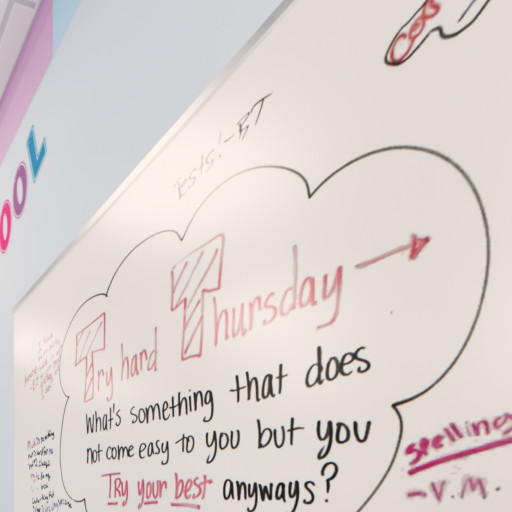 OOL
Tests! -BT
Try hard Thursday
What's something that does
not come easy to you but you
Try your best anyways?
spelling
-V.M.